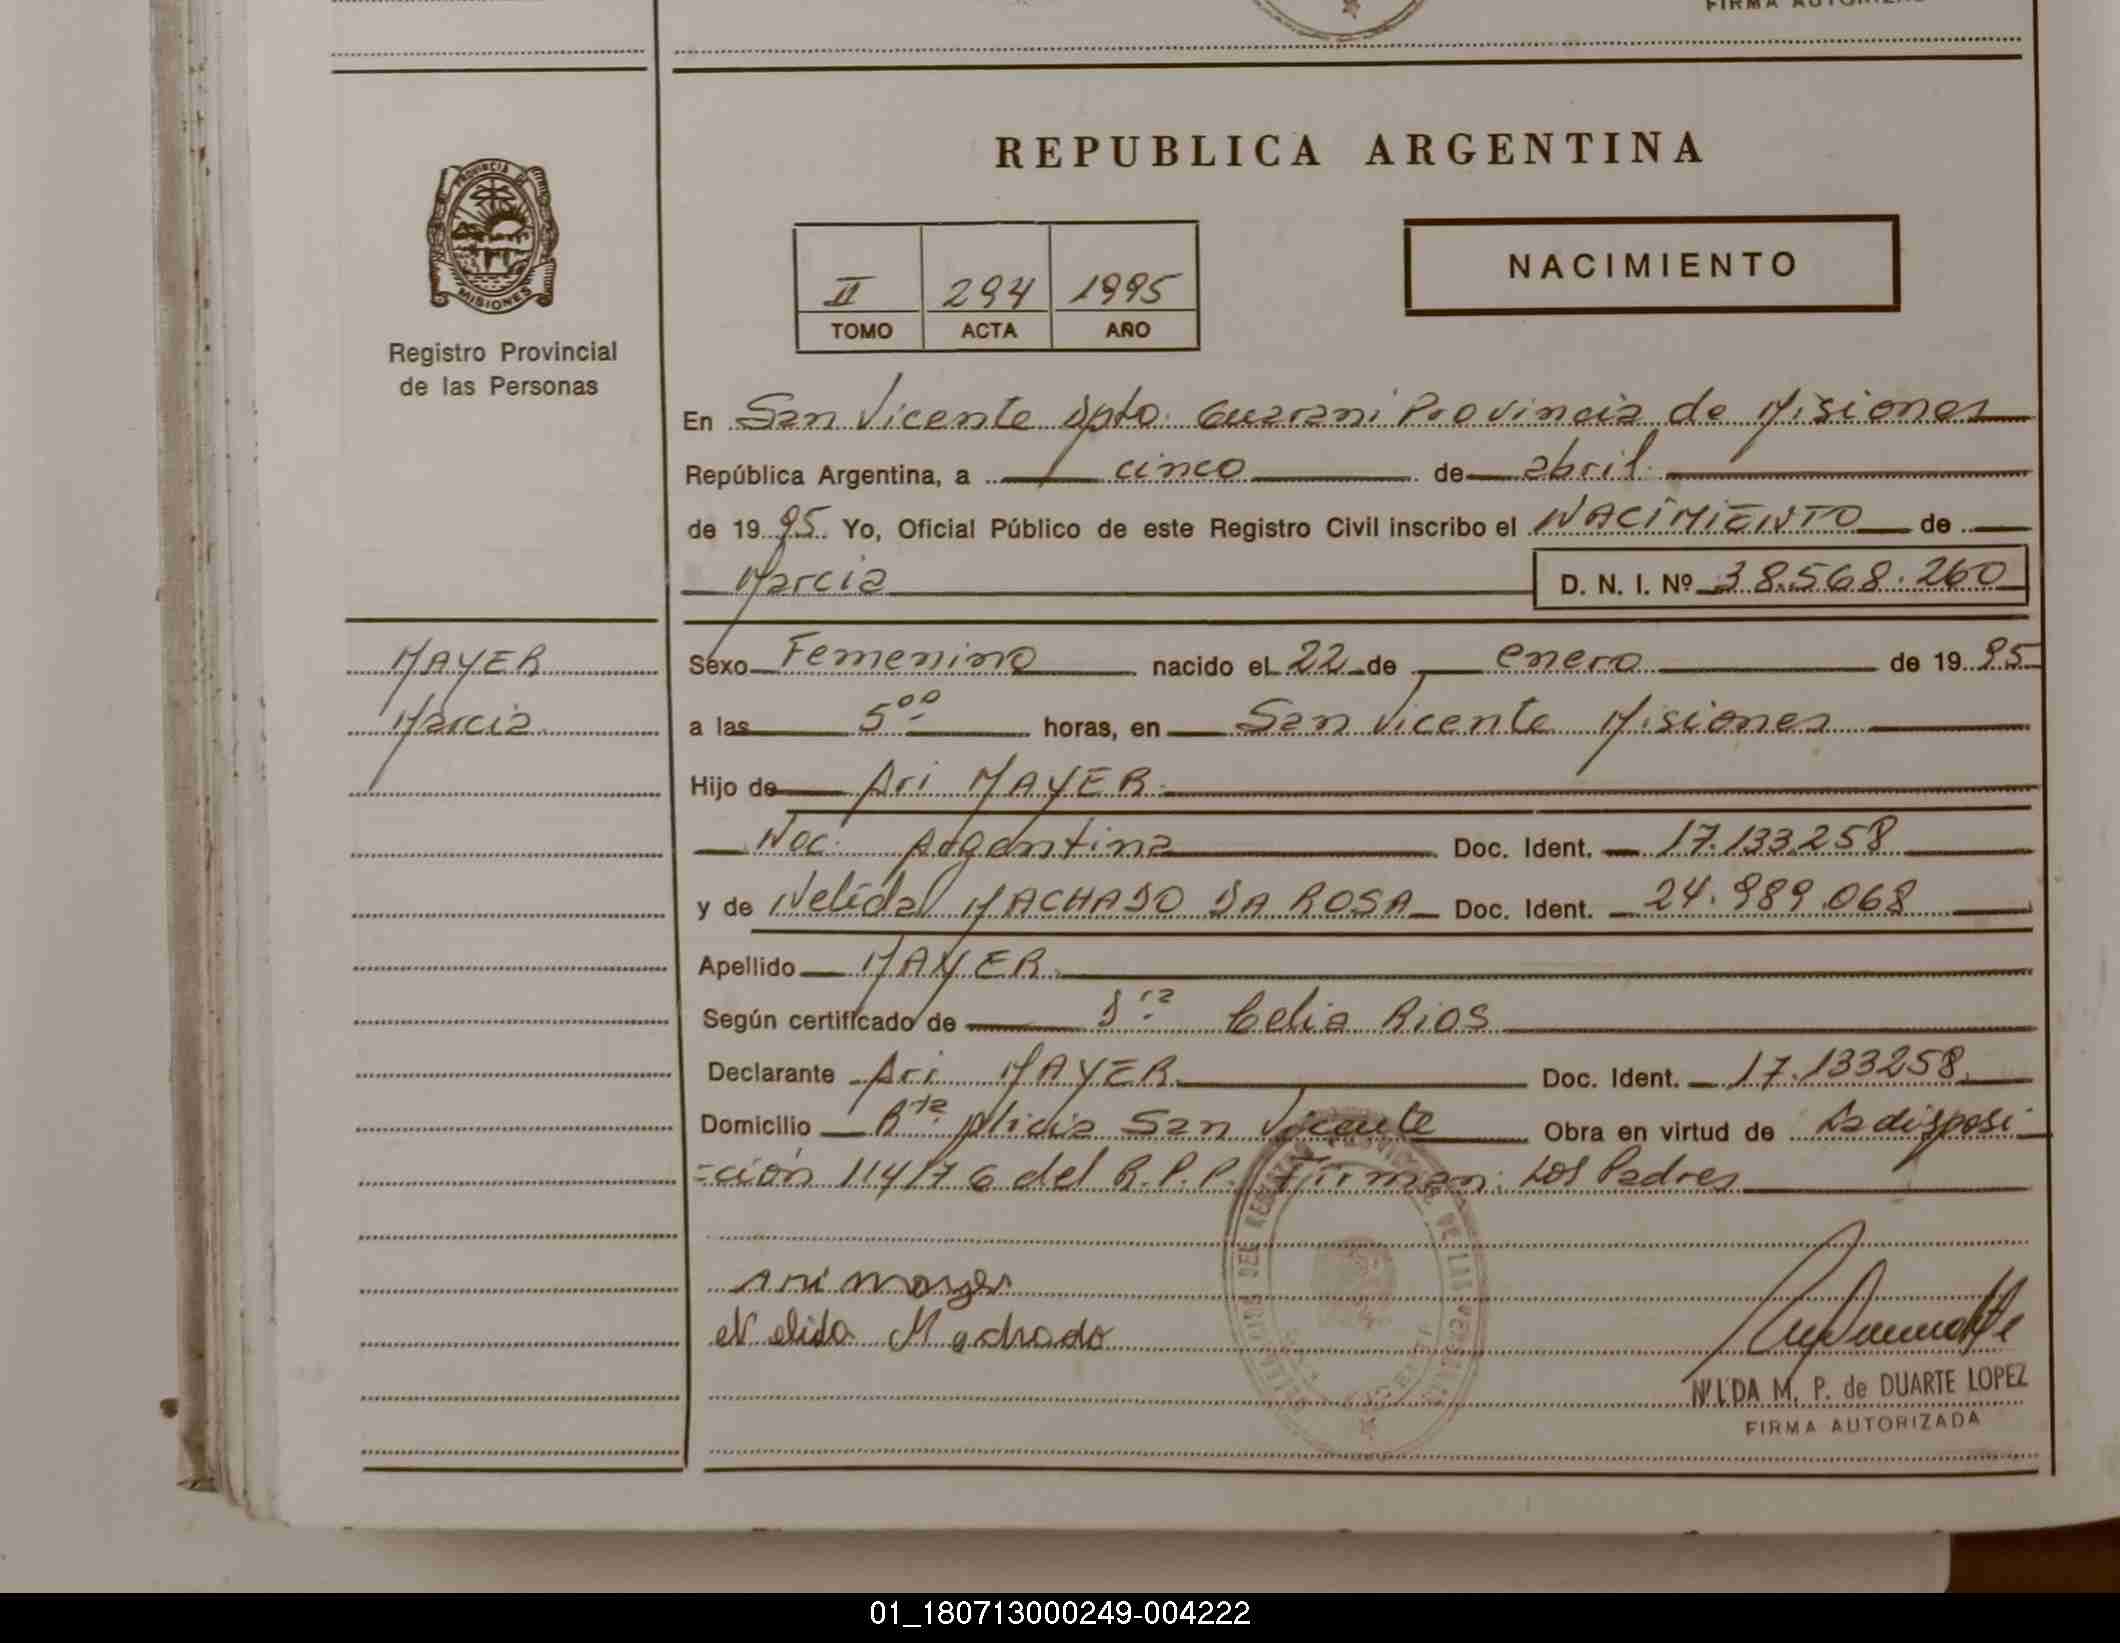 FIRMA AUTORIZAD
PROVINCIA DE
MISIONES
Registro Provincial
de las Personas
REPUBLICA ARGENTINA
II 294 1995
TOMO ACTA AÑO
NACIMIENTO
En San Vicente Dpto. Guarani Provincia de Misiones
República Argentina, a cinco de abril
de 1995 Yo, Oficial Público de este Registro Civil inscribo el NACIMIENTO de
Marcia D. N. I. Nº 38.568.260
MAYER
Marcia
Sexo Femenino nacido el 22 de enero de 1995
a las 5⁰⁰ horas, en San Vicente Misiones
Hijo de Ari MAYER
Nac. Argentina Doc. Ident. 17.133.258
y de Nelida MACHADO DA ROSA Doc. Ident. 24.989.068
Apellido MAYER
Según certificado de Dra Celia RIOS
Declarante Ari MAYER Doc. Ident. 17.133258
Domicilio Pto Alicia San Vicente Obra en virtud de La disposi
-ción 114/76 del R.P.P. Firman: Los Padres
Ari Mayer
Nelida Machado
NILDA M. P. de DUARTE LOPEZ
FIRMA AUTORIZADA
01_180713000249-004222